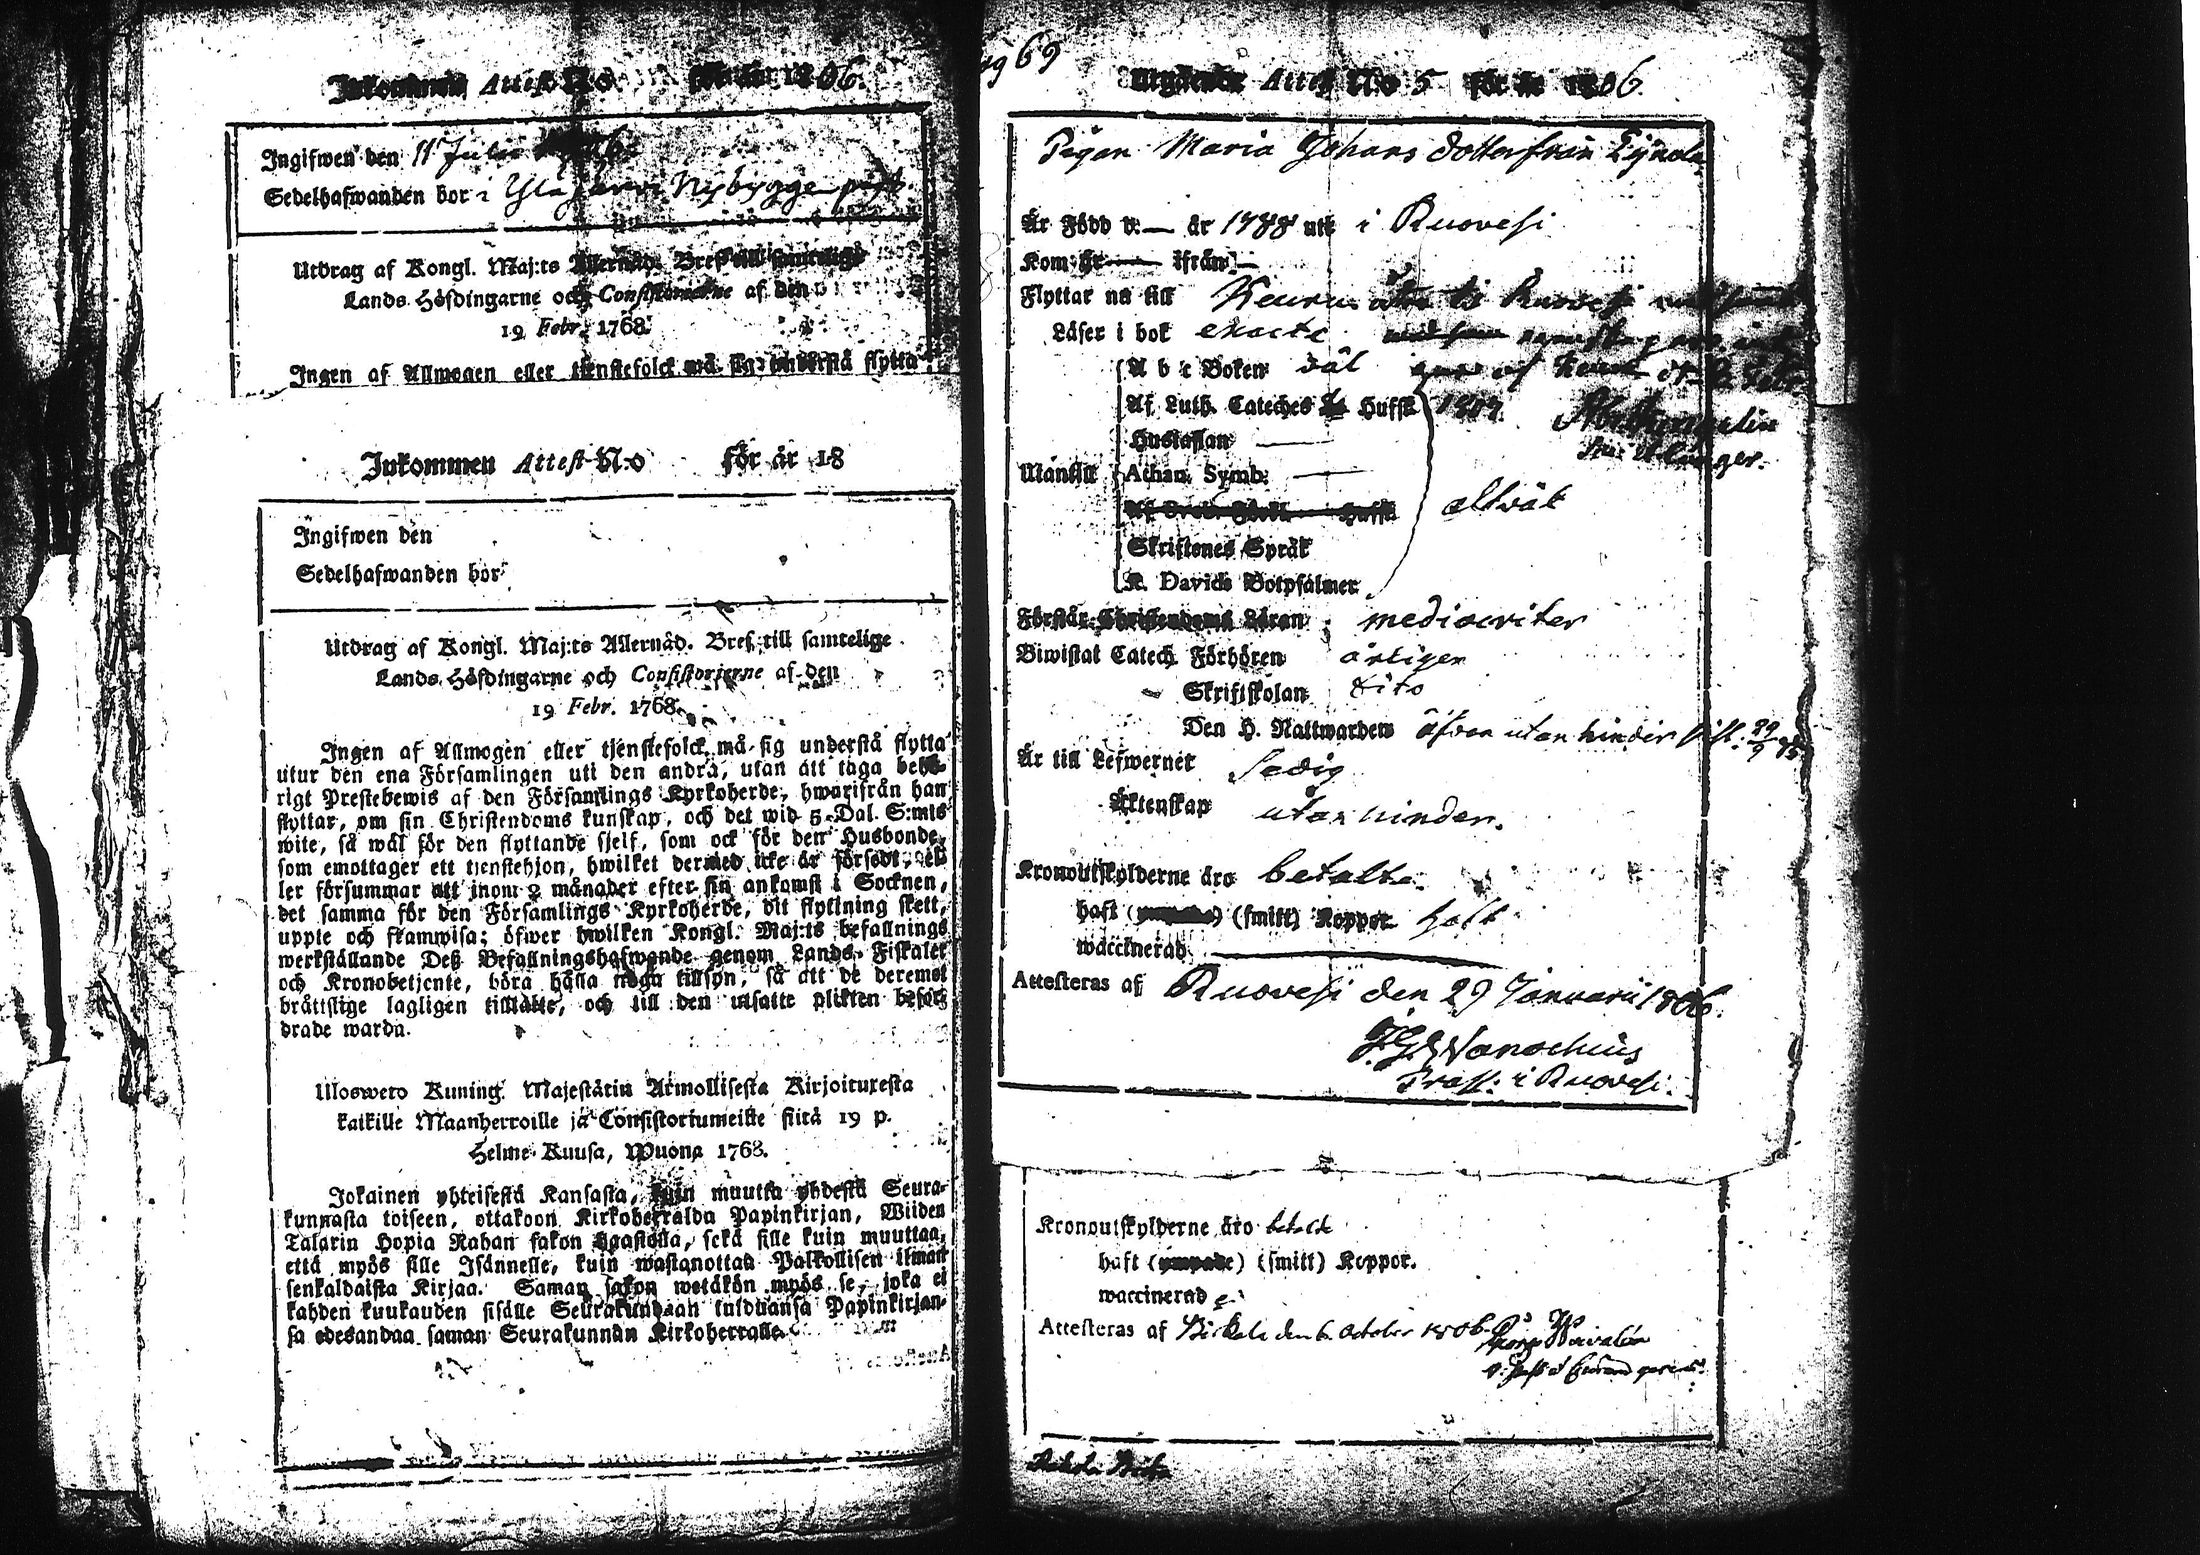 Inkommen Attest N:o för år 1806.
Ingifwen den 11 Julii
Sedelhafwanden bor i Yläjärvi Nybygge
Utdrag af Kongl. Maj:ts Allernåd. Bref till samtelige
Lands Höfdingarne och Consistorierne af den
19 Febr. 1768.
Ingen af Allmogen eller tjenstefolck må sig understå flytta
Inkommen Attest N:o för år 18
Ingifwen den
Sedelhafwanden bor
Utdrag af Kongl. Maj:ts Allernåd. Bref till samtelige
Lands Höfdingarne och Consistorierne af den
19 Febr. 1768.
Ingen af Allmogen eller tjenstefolck må sig understå flytta
utur den ena Församlingen uti den andra, utan att taga behö-
rigt Prestebewis af den Församlings Kyrkoherde, hwarifrån han
flyttar, om sin Christendoms kunskap, och det wid 5 Dal. S:mts
wite, så wäl för den flyttande sjelf, som ock för den Husbonde,
som emottager ett tjenstehjon, hwilket dermed icke är försedt, el-
ler försummar att inom 2 månader efter sin ankomst i Socknen,
det samma för den Församlings Kyrkoherde, dit flyttning skett,
uppte och framwisa; öfwer hwilken Kongl. Maj:ts befallnings
werkställande Deß Befallningshafwande genom Lands-Fiskaler
och Kronobetjente, böra hålla noga tillsyn, så att de deremot
bråttslige lagligen tilltalte, och till den utsatte plikten beför-
drade warda.
Uloswero Kuning. Majestätin Armollisesta Kirjoituxesta
kaikille Maanherroille ja Consistoriumeille siitä 19 p.
Helme-Kuusa, Wuona 1768.
Jokainen yhteisestä Kansasta, kuin muutta yhdestä Seura-
kunnasta toiseen, ottakoon Kirkoherralda Papinkirjan, Wiiden
Talarin Hopia Rahan sakon haastolla, sekä sille kuin muuttaa,
että myös sille Isännelle, kuin wastanottaa Palkollisen ilman
senkaldaista Kirjaa. Saman sakon wetäkön myös se, joka ei
kahden kuukauden sisälle Seurakundaan tulduansa Papinkirjan-
sa edesandaa saman Seurakunnan Kirkoherralle.
69
Utgående Attest N:o 5 för år 1806.
Pigan Maria Johans dotter från
Är Född d. — år 1788 uti i Ruovesi
Kom år — ifrån —
Flyttar nu till Keuru åter til Ruovesi
Läser i bok exacte
A b c Boken väl
Af Luth. Cateches Hufst. 1807.
Hustaflan —
Utantill Athan. Symb. —
Skriftenes Språk altväl
K. Davids Botpsalmer
Förstår Christendoms Läran mediocriter
Biwistat Catech. Förhören årligen
Skriftskolan dito
Den H. Nattwarden äfven utan hinder sist. 29/9
Är till Lefwernet Sedig
Äktenskap utan hinder.
Kronoutskylderne äro betalte.
haft (ympade) (smitt) Koppor haft
waccinerad —
Attesteras af Ruovesi den 29 Januarii 1806.
Wanochius
Præp. i Ruovesi.
Kronoutskylderne äro betalte
haft (ympade) (smitt) Koppor.
waccinerad
Attesteras af den 6 October 1806.